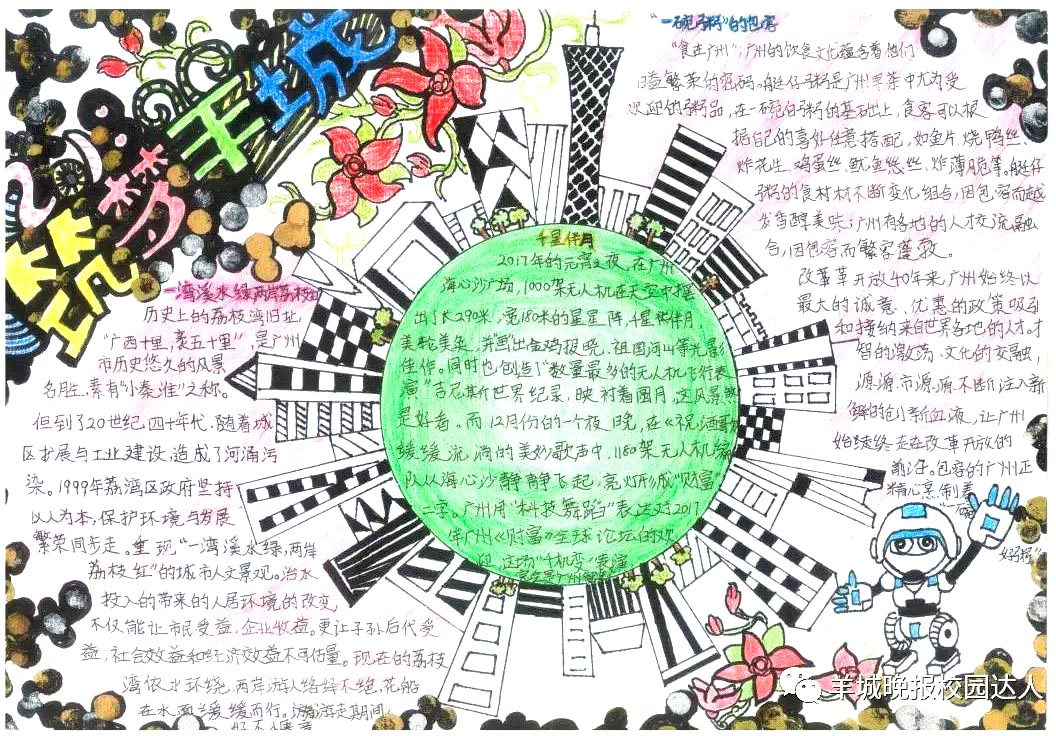 羊城
筑梦
一湾溪水绿两岸荔枝红
历史上的荔枝湾旧址,
"广西十里,袤五十里",是广州
市历史悠久的风景
名胜,素有"小秦淮"之称。
但到了20世纪,四十年代,随着城
区扩展与工业建设,造成了河涌污
染。1999年荔湾区政府坚持
以人为本,保护环境与发展
繁荣同步走。重现"一湾溪水绿,两岸
荔枝红"的城市人文景观。治水
投入的带来的人居环境的改变,
不仅能让市民受益,企业收益。更让子孙后代受
益,社会效益和经济效益不可估量。现在的荔枝
湾依水环绕,两岸游人络绎不绝,花船
在水面缓缓而行。游走期间,
千星伴月
2017年的元宵之夜,在广州
海心沙广场,1000架无人机在天空中摆
出了长290米,宽180米的星星阵,千星伴月
美轮美奂,并画出金鸡报晓、祖国河山等光影
佳作。同时也创造了"数量最多的无人机飞行表
演"吉尼斯世界纪录,映衬着圆月,这风景
是好看。而12月份的一个夜晚,在《祝酒歌》
缓缓流淌的美妙歌声中,1180架无人机编
队从海心沙静静飞起,亮灯形成"财富"
二字。广州用"科技舞蹈"表达对2017
年广州《财富》全球论坛的欢
迎,这场"千机变"表演
"一碗粥"的包容
"食在广州",广州的饮食文化蕴含着他们
日益繁荣的密码。艇仔粥是广州早茶中尤为受
欢迎的粥品,在一碗白粥的基础上,食客可以根
据自己的喜好任意搭配,如鱼片、烧鸭丝、
炸花生、鸡蛋丝、鱿鱼丝、炸薄脆等。艇仔
粥的食材不断变化组合,因包容而越
发香醇美味;广州有各地的人才交流融
合,因包容而繁荣蓬勃。
改革开放40年来,广州始终以
最大的诚意、优惠的政策吸引
和接纳来自世界各地的人才。才
智的激荡、文化的交融,
源源不断注入新
鲜的创新血液,让广州
始终走在改革开放的
前沿。包容的广州正
精心烹制着
"一碗
好粥"
羊城晚报校园达人